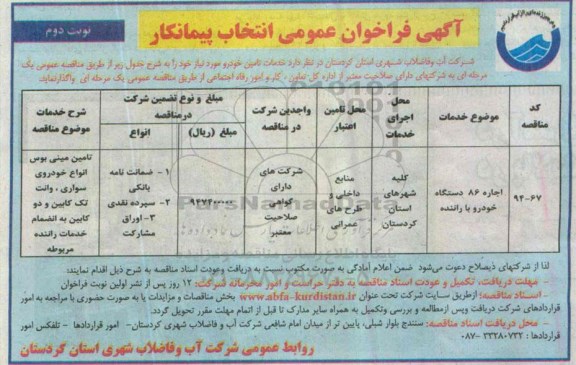 نوبت دوم
آگهی فراخوان عمومی انتخاب پیمانکار
شرکت آب وفاضلاب شهری استان کردستان در نظر دارد خدمات تامین خودرو مورد نیاز خود را به شرح جدول زیر از طریق مناقصه عمومی یک
مرحله ای به شرکتهای دارای صلاحیت معتبر از اداره کل تعاون - کار و امور رفاه اجتماعی از طریق مناقصه عمومی یک مرحله ای واگذارنماید.
کد مناقصه
موضوع خدمات
محل اجرای خدمات
محل تامین اعتبار
واجدین شرکت در مناقصه
مبلغ و نوع تضمین شرکت درمناقصه
مبلغ (ریال)
انواع
شرح خدمات موضوع مناقصه
۹۴-۶۷
اجاره ۸۶ دستگاه خودرو با راننده
کلیه شهرهای استان کردستان
منابع داخلی و طرح های عمرانی
شرکت های دارای گواهی صلاحیت معتبر
۱- ضمانت نامه بانکی
۲- سپرده نقدی
۳- اوراق مشارکت
تامین مینی بوس انواع خودروی سواری، وانت تک کابین و دو کابین به انضمام خدمات راننده مربوطه
ParsNamadData
لذا از شرکتهای ذیصلاح دعوت می‌شود ضمن اعلام آمادگی به صورت مکتوب نسبت به دریافت وعودت اسناد مناقصه به شرح ذیل اقدام نمایند:
- مهلت دریافت، تکمیل و عودت اسناد مناقصه به دفتر حراست و امور محرمانه شرکت: ۱۲ روز پس از نشر اولین نوبت فراخوان
- اسناد مناقصه: ازطریق سایت شرکت تحت عنوان www.abfa-kurdistan.ir بخش مناقصات و مزایدات یا به صورت حضوری با مراجعه به امور
قراردادهای شرکت دریافت وپس ازمطالعه و بررسی وتکمیل به همراه سایر مدارک تا قبل از اتمام مهلت مقرر تحویل گردد.
- محل دریافت اسناد مناقصه: سنندج بلوار شبلی، پایین تر از میدان امام شافعی شرکت آب و فاضلاب شهری کردستان- امور قراردادها - تلفکس امور
قراردادها : ۳۳۲۸۰۷۳۲-۰۸۷
روابط عمومی شرکت آب وفاضلاب شهری استان کردستان